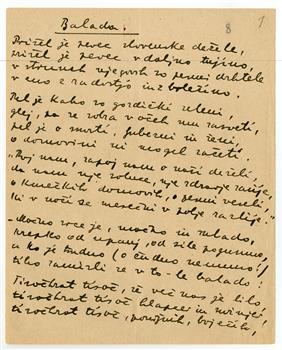 Balada.
8 1
Prišel je pevec slovenske dežele,
prišel je pevec v daljno tujino,
v strunah njegovih so pesmi drhtele
v eno z radostjo in z bolečino.
Pel je kako so gozdički zeleni,
glej, pa se solza v očeh mu zasveti,
pel je o smrti, ljubezni in ženi,
o domovini ni mogel začeti.
"Poj nam, zapoj nam o naši deželi,
da nam vsje solnce, vsje zdravje zasije,
o kmečkih domovih, o pesmi veseli
ki v noči se mesečni v polje razlije!"
– Močno srce je, močno in mlado,
krepko od upanj, od sile pogumno,
a ko je čudno (o čudno nemumno!)
tiho zamrli se v to-le balado:
Tisočkrat tisoč, še več nas je bilo
tisočkrat tisoč hlapcev in
tisočkrat tisoč,